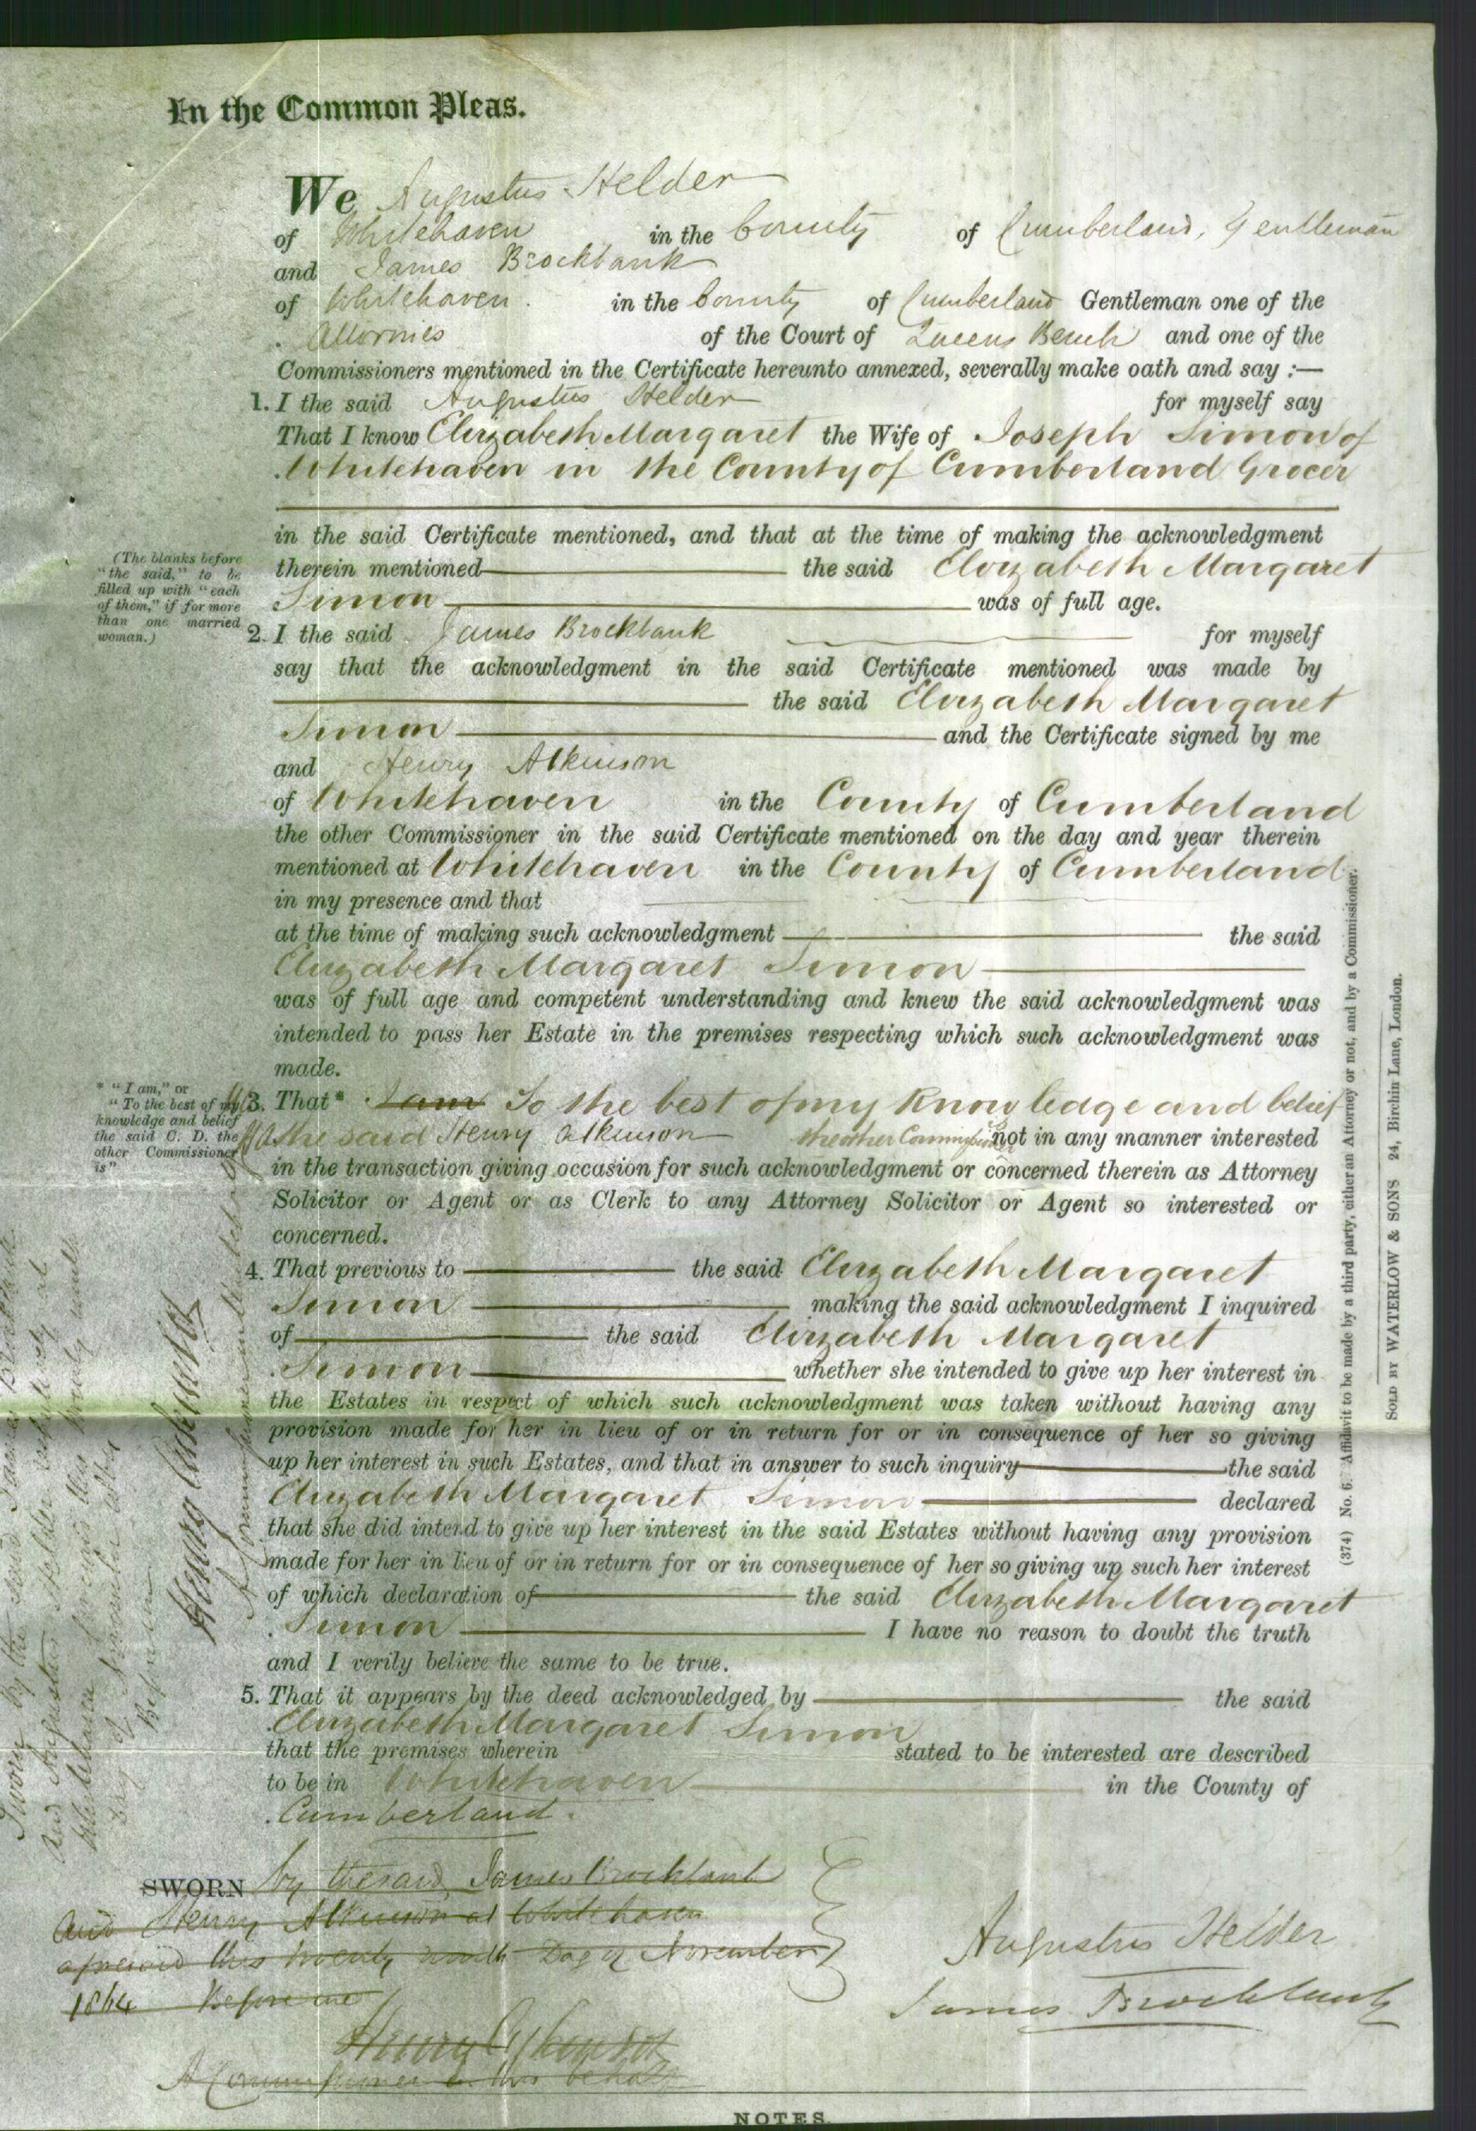 In the Common Pleas.
We Augustus Helder
of Whitehaven in the County of Cumberland, Gentleman
and James Brockbank
of Whitehaven in the County of Cumberland Gentleman one of the
Attornies of the Court of Queens Bench and one of the
Commissioners mentioned in the Certificate hereunto annexed, severally make oath and say :—
1. I the said Augustus Helder for myself say
That I know Elizabeth Margaret the Wife of Joseph Simon of
Whitehaven in the County of Cumberland Grocer
in the said Certificate mentioned, and that at the time of making the acknowledgment
therein mentioned the said Elizabeth Margaret
Simon was of full age.
(The blanks before
"the said," to be
filled up with "each
of them," if for more
than one married
woman.)
2. I the said James Brockbank for myself
say that the acknowledgment in the said Certificate mentioned was made by
the said Elizabeth Margaret
Simon and the Certificate signed by me
and Henry Atkinson
of Whitehaven in the County of Cumberland
the other Commissioner in the said Certificate mentioned on the day and year therein
mentioned at Whitehaven in the County of Cumberland
in my presence and that
at the time of making such acknowledgment the said
Elizabeth Margaret Simon
was of full age and competent understanding and knew the said acknowledgment was
intended to pass her Estate in the premises respecting which such acknowledgment was
made.
* "I am," or
"To the best of my
knowledge and belief
the said C. D. the
other Commissioner
is"
3. That* I am To the best of my knowledge and belief
the said Henry Atkinson the other Commissioner is not in any manner interested
in the transaction giving occasion for such acknowledgment or concerned therein as Attorney
Solicitor or Agent or as Clerk to any Attorney Solicitor or Agent so interested or
concerned.
4. That previous to the said Elizabeth Margaret
Simon making the said acknowledgment I inquired
of the said Elizabeth Margaret
Simon whether she intended to give up her interest in
the Estates in respect of which such acknowledgment was taken without having any
provision made for her in lieu of or in return for or in consequence of her so giving
up her interest in such Estates, and that in answer to such inquiry the said
Elizabeth Margaret Simon declared
that she did intend to give up her interest in the said Estates without having any provision
made for her in lieu of or in return for or in consequence of her so giving up such her interest
of which declaration of the said Elizabeth Margaret
Simon I have no reason to doubt the truth
and I verily believe the same to be true.
5. That it appears by the deed acknowledged by the said
Elizabeth Margaret Simon
that the premises wherein stated to be interested are described
to be in Whitehaven in the County of
Cumberland.
SWORN by the said James Brockbank
and Henry Atkinson at Whitehaven
aforesaid this twenty ninth Day of November
1864 Before me
A Commissioner &c in this behalf
Augustus Helder
James Brockbank
Sworn by the said James Brockbank
and Augustus Helder respectively at
Whitehaven this twenty ninth
Day of November 1864
Before me
(374) No. 6. Affidavit to be made by a third party, either an Attorney or not, and by a Commissioner.
SOLD BY WATERLOW & SONS 24, Birchin Lane, London.
NOTES.